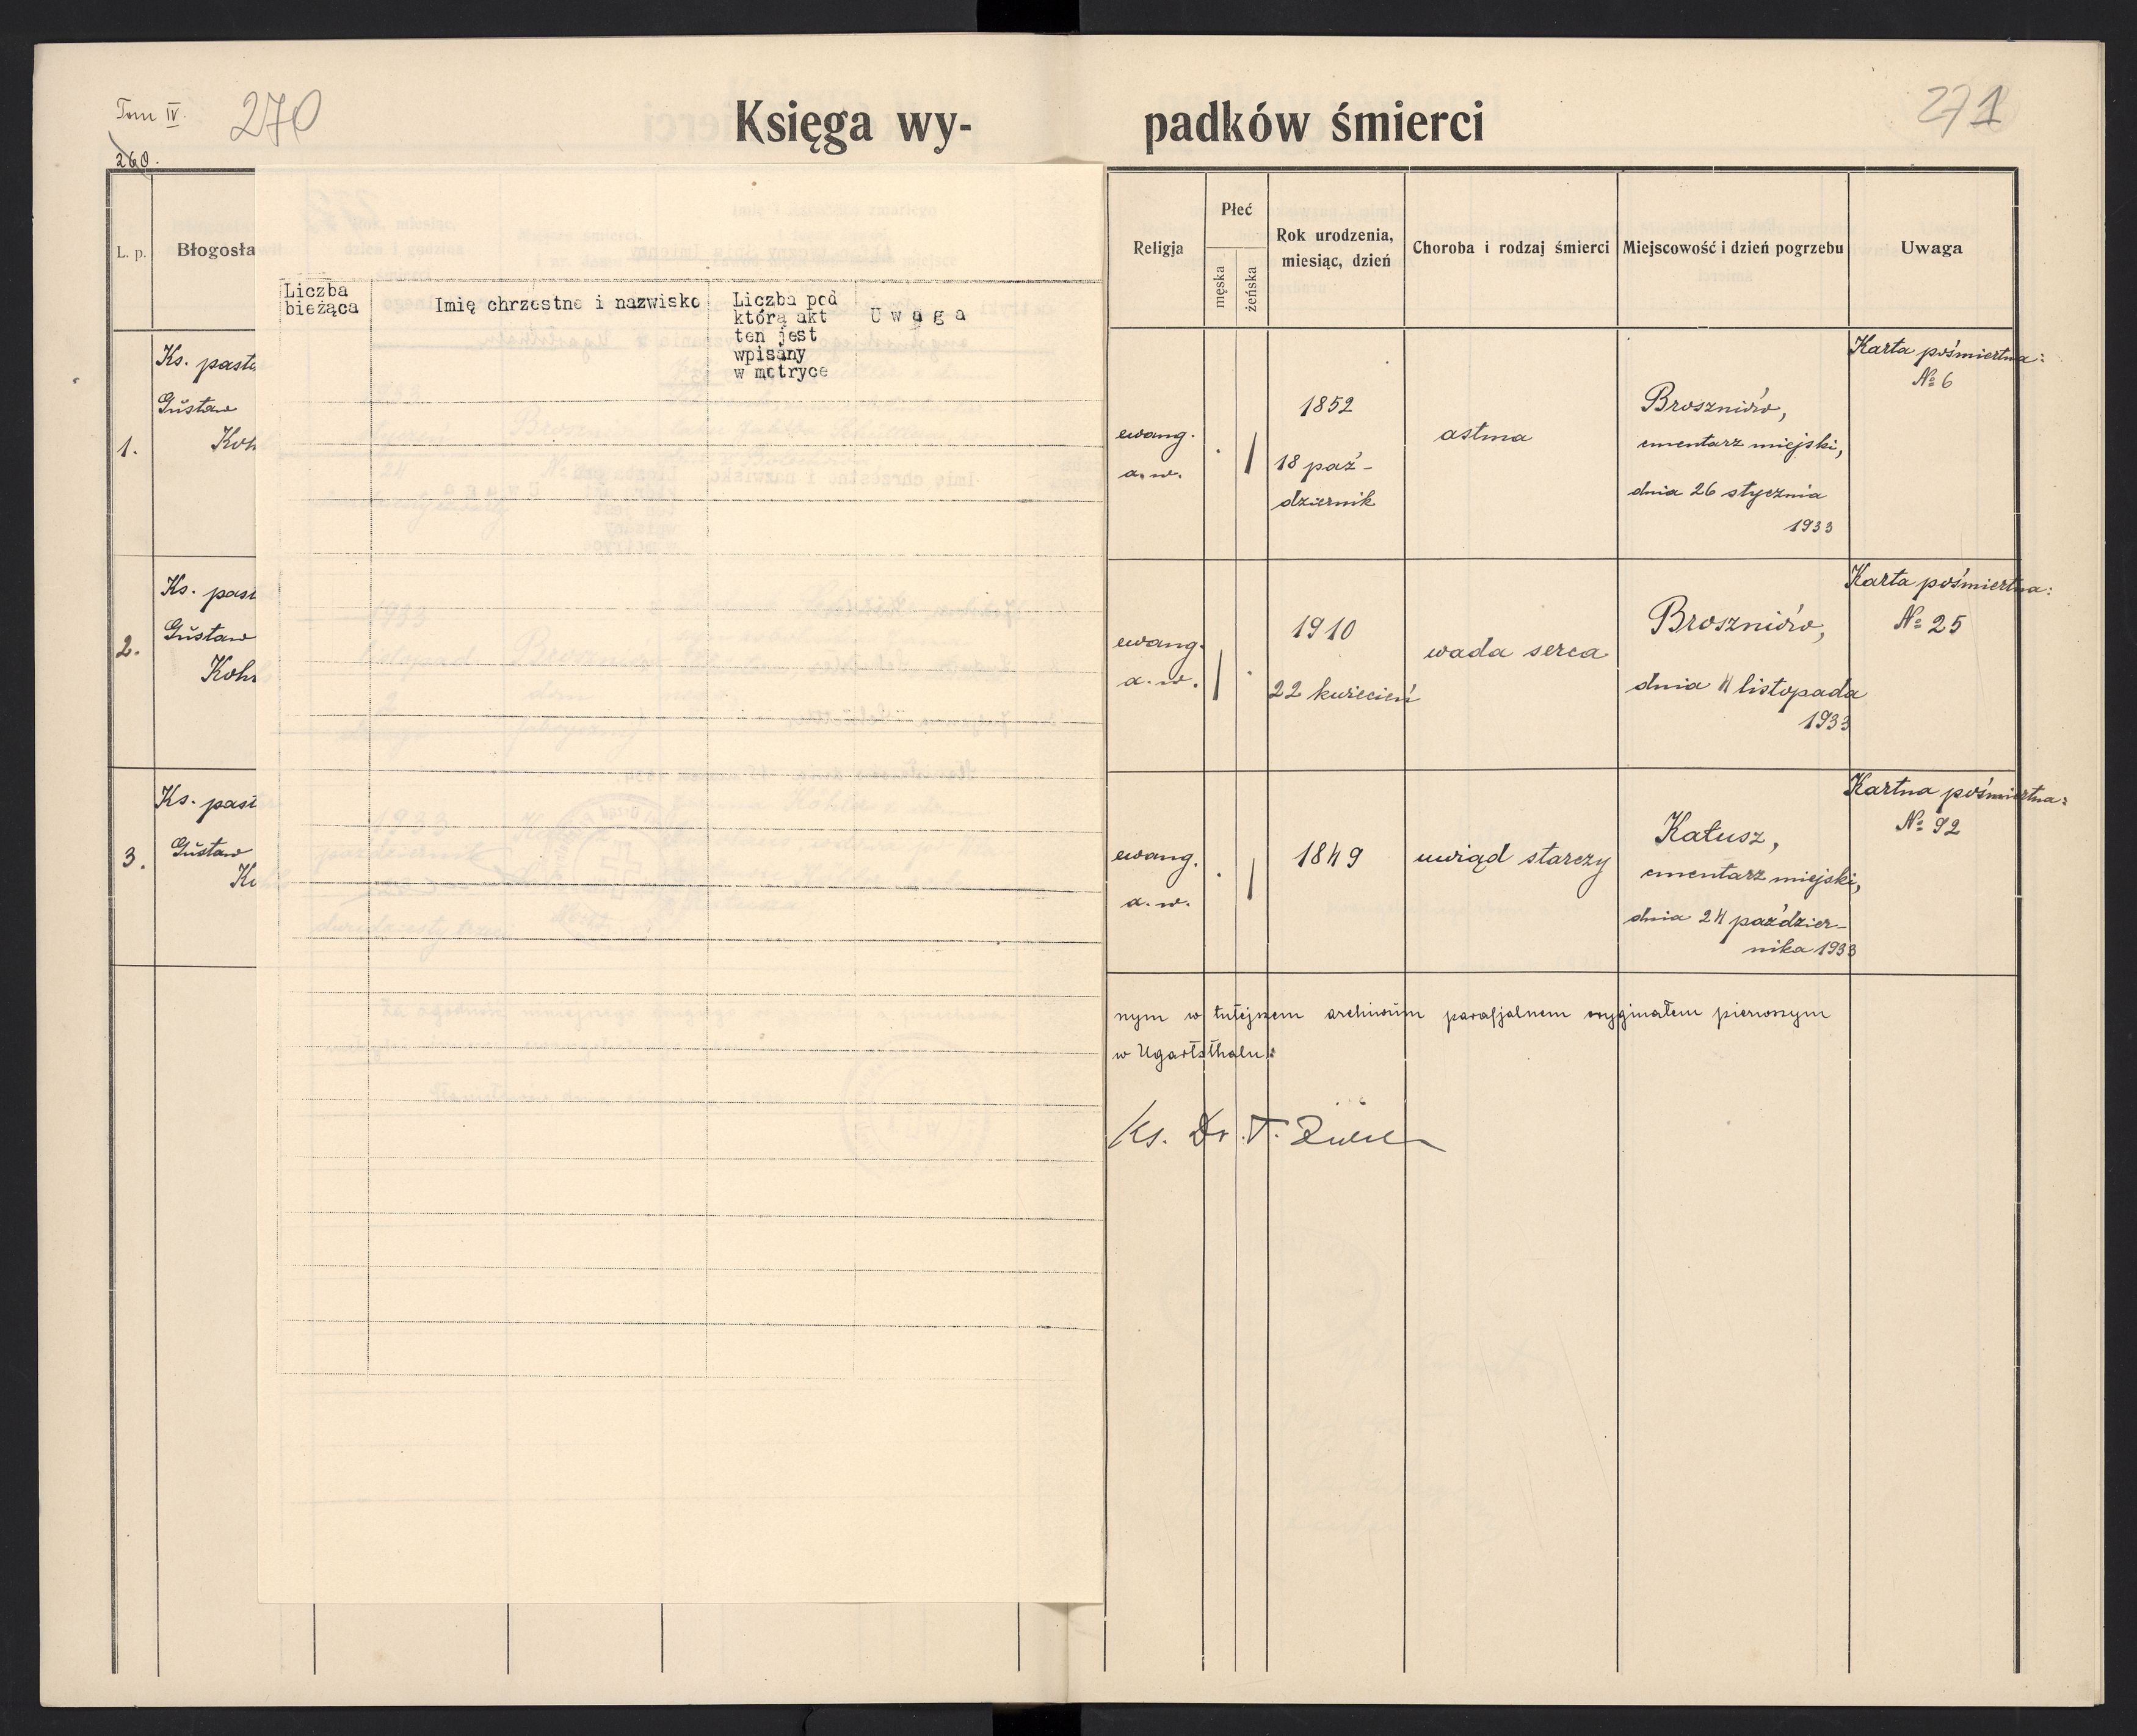 Tom IV.
270
260.
Księga wy-
padków śmierci
271
L. p.
Błogosła
Liczba
bieżąca
Imię chrzestne i nazwisko
Liczba pod
którą akt
ten jest
wpisany
w metryce
U w a g a
1.
Ks. past
Gustaw
Koh
2.
Ks. past
Gustaw
Koh
3.
Ks. past
Gustaw
Ko
Religja
Płeć
męska
żeńska
Rok urodzenia,
miesiąc, dzień
Choroba i rodzaj śmierci
Miejscowość i dzień pogrzebu
Uwaga
ewang.
a. w.
1852
18 paź-
dziernik
astma
Broszniów,
cmentarz miejski,
dnia 26 stycznia
1933
Karta pośmiertna:
№ 6
ewang.
a. w.
1910
22 kwiecień
wada serca
Broszniów,
dnia 4 listopada
1933
Karta pośmiertna:
№ 25
ewang.
a. w.
1849
uwiąd starczy
Kałusz,
cmentarz miejski,
dnia 24 paździer-
nika 1933
Kartna pośmiertna:
№ 92
nym w tutejszem archiwum parafjalnem oryginałem pierwszym
w Ugartsthalu:
Ks. Dr. T.